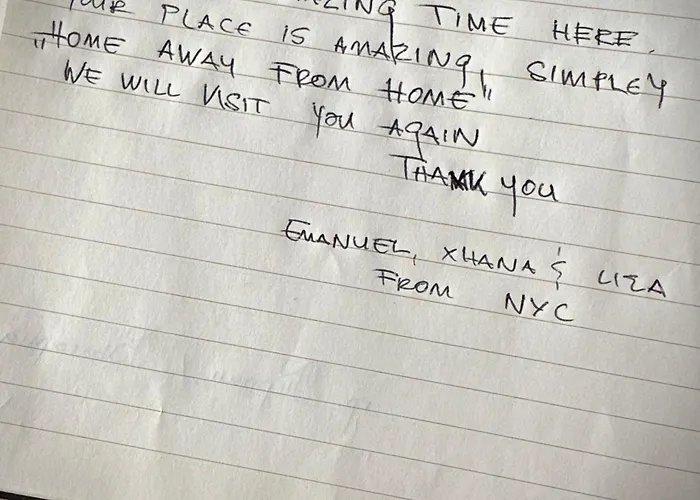 TIME HERE.
YOUR PLACE IS AMAZING, SIMPLEY
"HOME AWAY FROM HOME"
WE WILL VISIT YOU AGAIN
THANK YOU
EMANUEL, XHANA & LIZA
FROM NYC